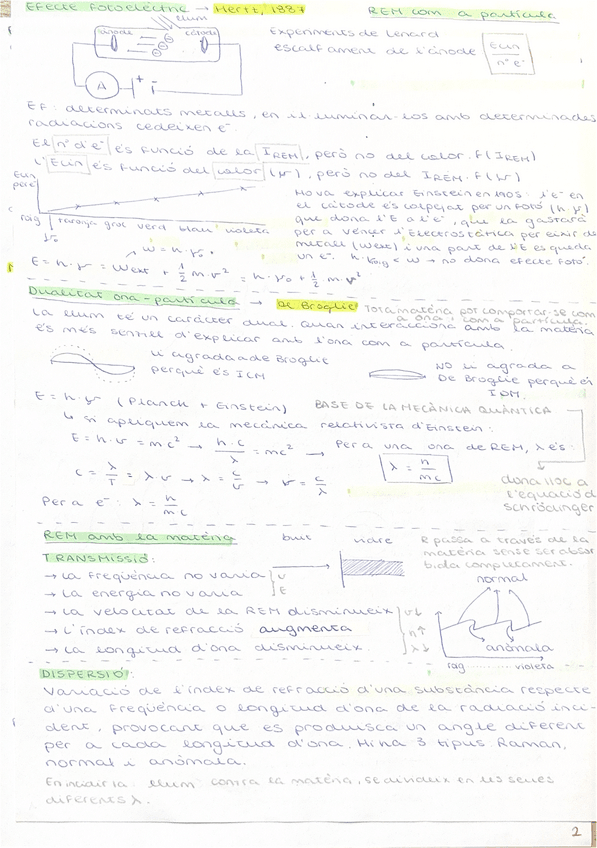 Efecte fotoelèctric → Hertz, 1887
REM com a partícula
llum
ànode
càtode
e-
A
+ -
Experiments de Lenard
escalfament de l'ànode
Ecin
nº e-
EF: determinats metalls, en il·luminar-los amb determinades
radiacions cedeixen e-.
El nº d'e- és funció de la IREM, però no del color. f(IREM)
L'Ecin és funció del color (ν), però no del IREM. f(ν)
Ecin
per e-
roig taronja groc verd blau violeta
ν0
Ho va explicar Einstein en 1905: l'e- en
el càtode és colpejat per un fotó (h·ν)
que dona l'E a l'e-, que la gastarà
per a vèncer l'Electrostàtica per eixir del
metall (Wext) i una part de l'E es queda
un e-. h·νroig < W → no dona efecte fotó.
W = h·ν0
E = h·ν = Wext + 1/2 m·v² = h·ν0 + 1/2 m·v²
Dualitat ona-partícula → De Broglie
Tota matèria pot comportar-se com
a ona i com a partícula.
La llum té un caràcter dual. Quan interacciona amb la matèria
és més senzill d'explicar amb l'ona com a partícula.
Li agrada a de Broglie
perquè és 1CM
NO li agrada a
De Broglie perquè és
E = h·ν (Planck + Einstein)
BASE DE LA MECÀNICA QUÀNTICA
↳ si apliquem la mecànica relativista d'Einstein:
E = h·ν = mc² → h·c/λ = mc² →
Per a una ona de REM, λ és:
λ = h/mc
c = λ/T = λ·ν → λ = c/ν → ν = c/λ
dona lloc a
l'equació d
Schrödinger
Per a e-: λ = h/mc
REM amb la matèria
buit
vidre
R passa a través de la
matèria sense ser absor
bida completament.
TRANSMISSIÓ:
→ La freqüència no varia
→ La energia no varia
ν
E
→ La velocitat de la REM disminueix
→ L'índex de refracció augmenta
→ La longitud d'ona disminueix.
v↓
n↑
λ↓
normal
anòmala
roig ........ violeta
DISPERSIÓ:
Variació de l'índex de refracció d'una substància respecte
d'una freqüència o longitud d'ona de la radiació inci-
dent, provocant que es produïsca un angle diferent
per a cada longitud d'ona. Hi ha 3 tipus. Raman,
normal i anòmala.
En incidir la llum contra la matèria, se divideix en les seues
diferents λ.
2